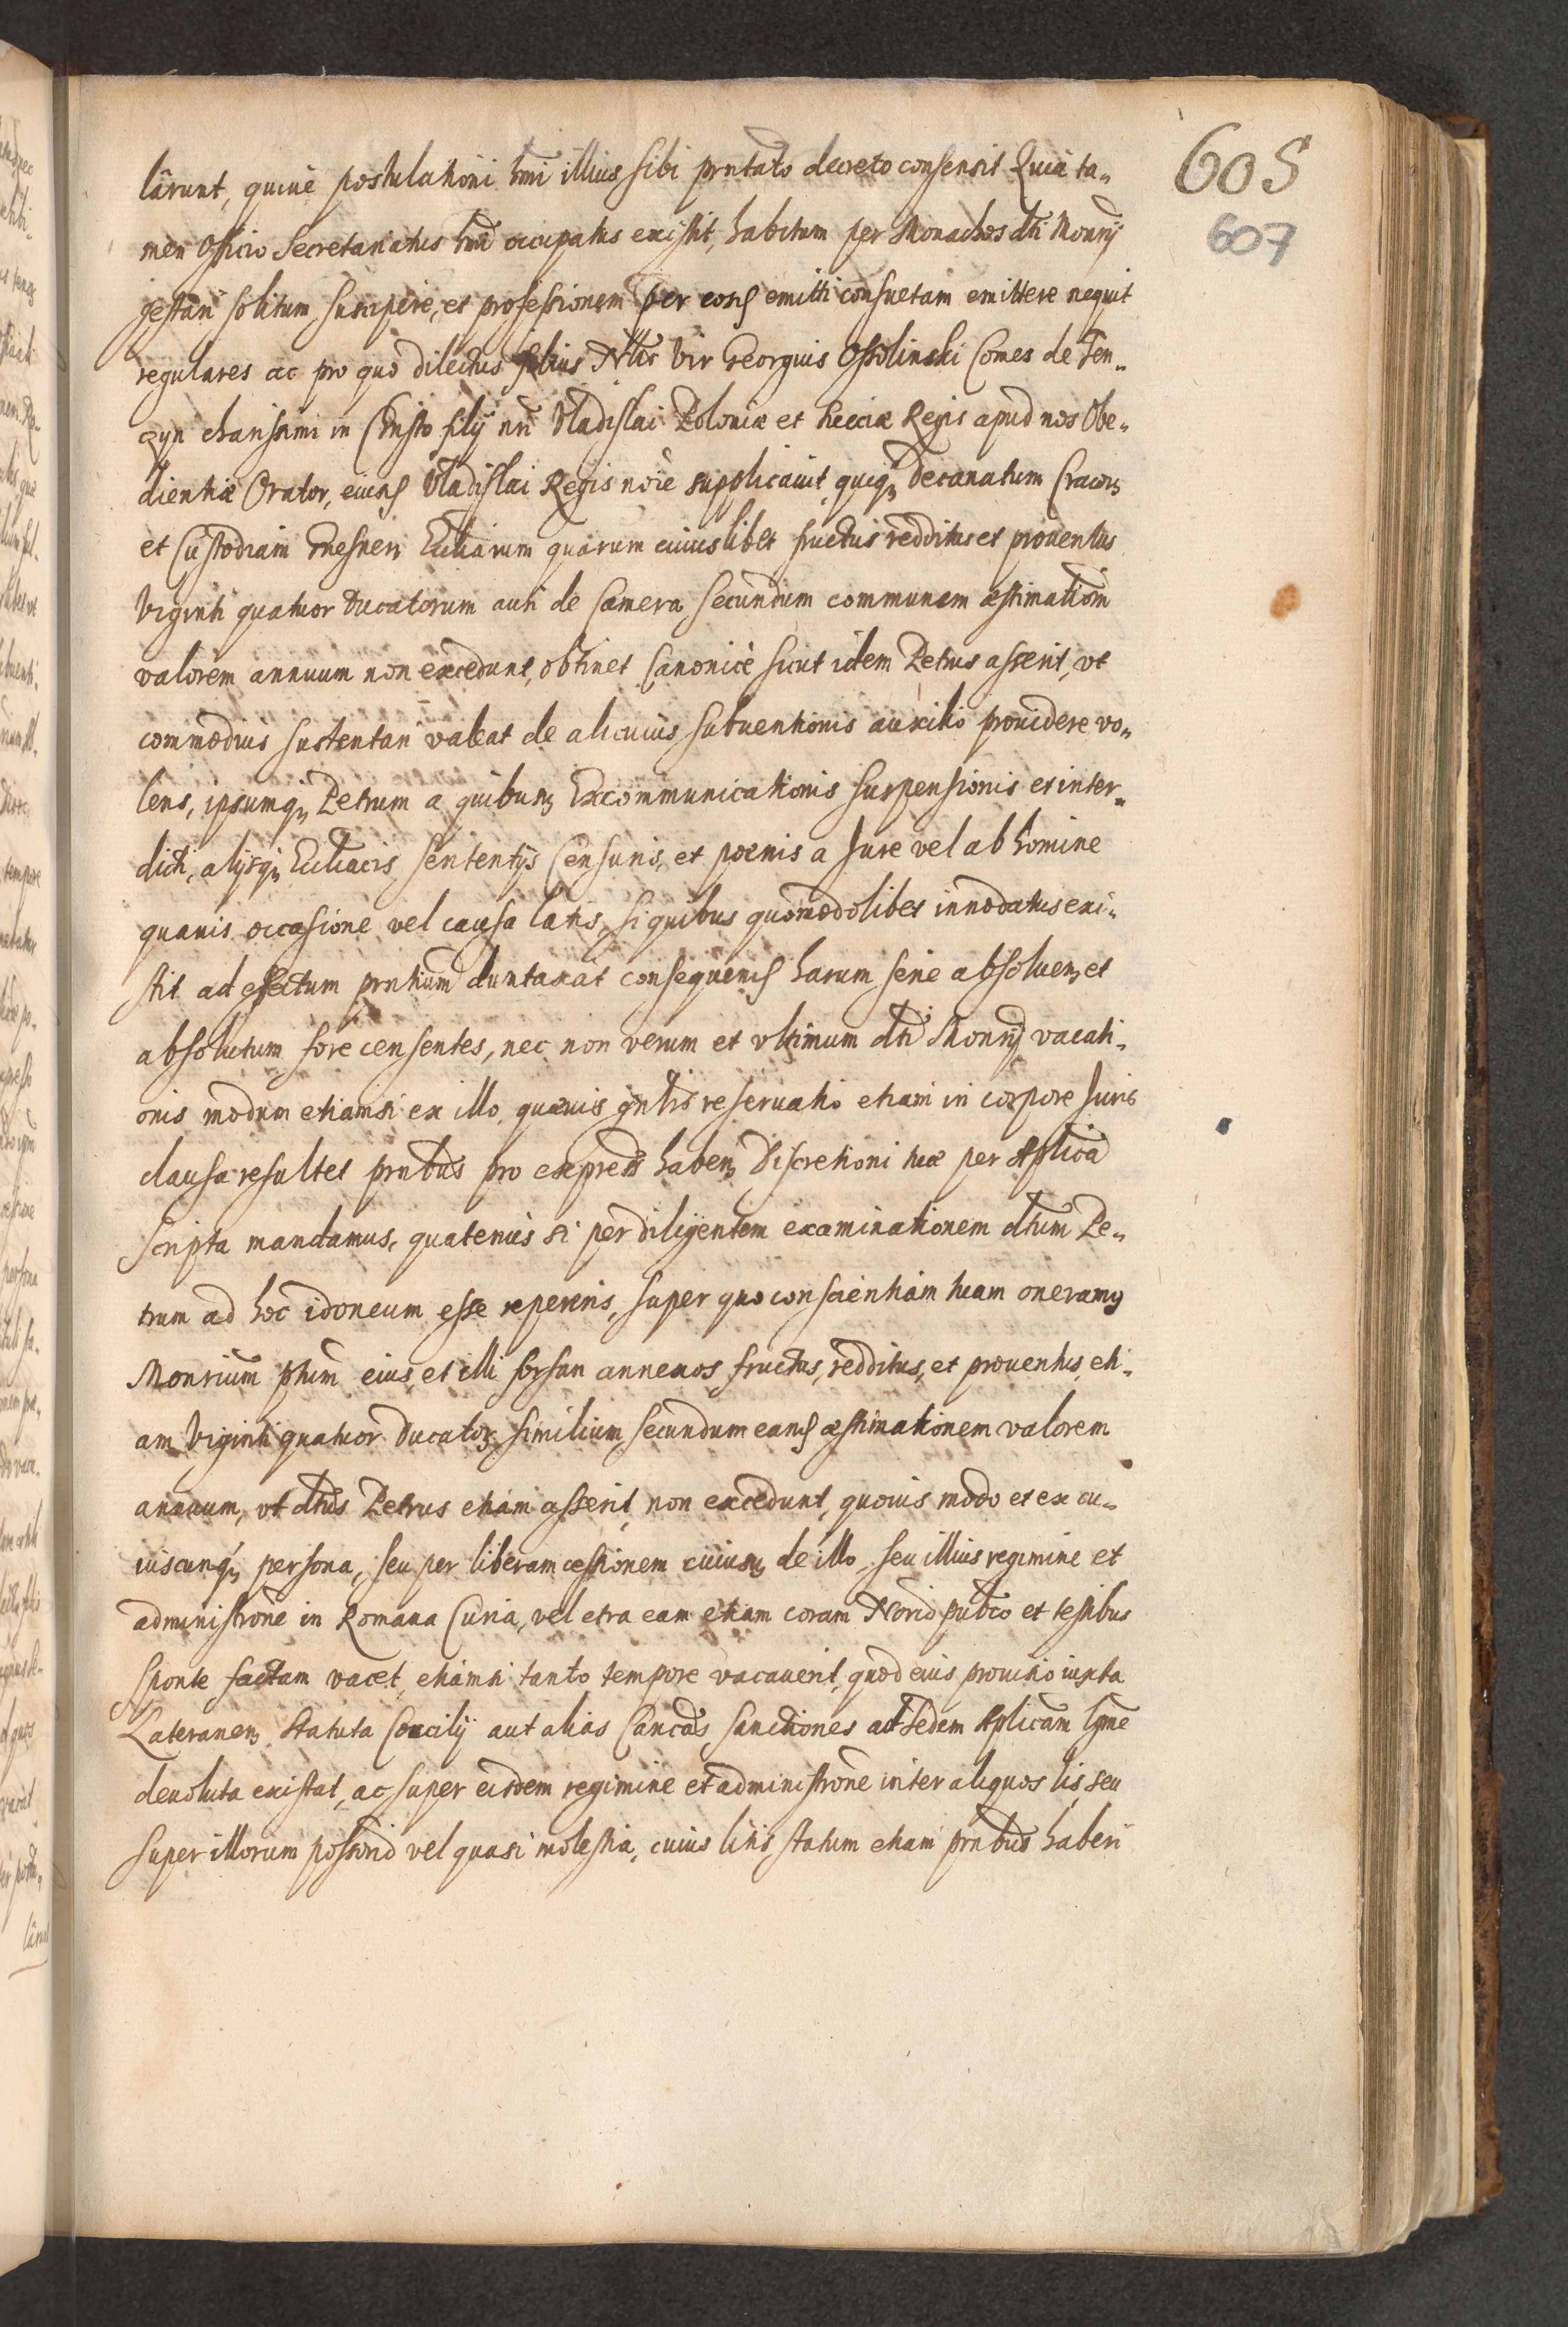 605
607
lârunt, quiuè postulationi hmõi illius sibi prntato decreto consensit Quia ta„
men Officio Secretariatus hmõi occupatus existit, habitum per Monachos dti Monrij
gestari solitum suscipere, et professionem per eosd emitti consuetam emittere nequit
regulares ac pro quo dilectus filius Nlis Vir Georgius Ossolinski Comes de Ten„
qyn charissimi in Christo filij nri Vladislai Poloniæ et Sueciæ Regis apud nos Obe„
dientiæ Orator, eiusd Vladislai Regis nõie supplicauit, quiq; Decanatum Cracouen
et Custodiam Gnesnen Eccliarum quarum cuiuslibet fructus redditus et prouentus
Viginti quatuor Ducatorum auri de Camera secundum communem æstimationem
valorem annuum non excedunt, obtinet Canonicè sicut idem Petrus asserit, vt
commodius sustentari valeat de alicuius subuentionis auxilio prouidere vo„
lens, ipsumq; Petrum a quibusuis Excommunicationis suspensionis et inter„
dicti, alijsq; Eccliacis sententijs Censuris, et pœnis a Jure vel ab homine
quauis occasione vel causa latis, si quibus quomodolibet innodatus exi„
stit ad effectum prntium duntaxat consequend harum serie absoluen, et
absolutum fore censentes, nec non verum et vltimum dti Monrij vacati„
onis modum etiamsi ex illo quæuis gnlis reseruatio etiam in corpore Juris
clausa resultet prntbus pro expressis haben, Discretioni tuæ per Aplica
scripta mandamus, quatenùs si per diligentem examinationem dtum Pe„
trum ad hoc idoneum esse repereris, super quo conscientiam tuam oneramus
Monrium phtum eius, et illi forsan annexos fructus, redditus, et prouentus, eti„
am Viginti quatuor Ducatorum similium, secundum eand æstimationem valorem
annuum, vt dtus Petrus etiam asserit, non excedunt, quouis modo et ex cu„
iuscunq; persona, seu per liberam cessionem cuiusuis de illo seu illius regimine et
administrone in Romana Curia, vel etra eam etiam coram Norio pubco et testibus
sponte factam vacet, etiamsi tanto tempore vacauerit, quod eius prouisio iuxta
Lateranen. statuta Concilij aut alias Cancas sanctiones ad Sedem Aplicam lgme
deuoluta existat, ac super eisdem regimine et administrone inter aliquos lis, seu
super illorum possõrio vel quasi molestia, cuius litis statum etiam prntbus haberi